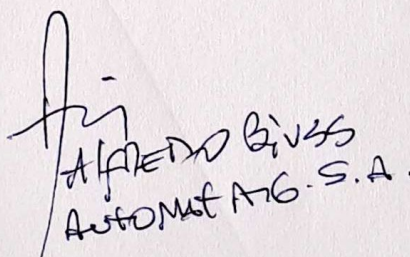 ALFREDO Bivss
AUTOMAT A-G. S. A.